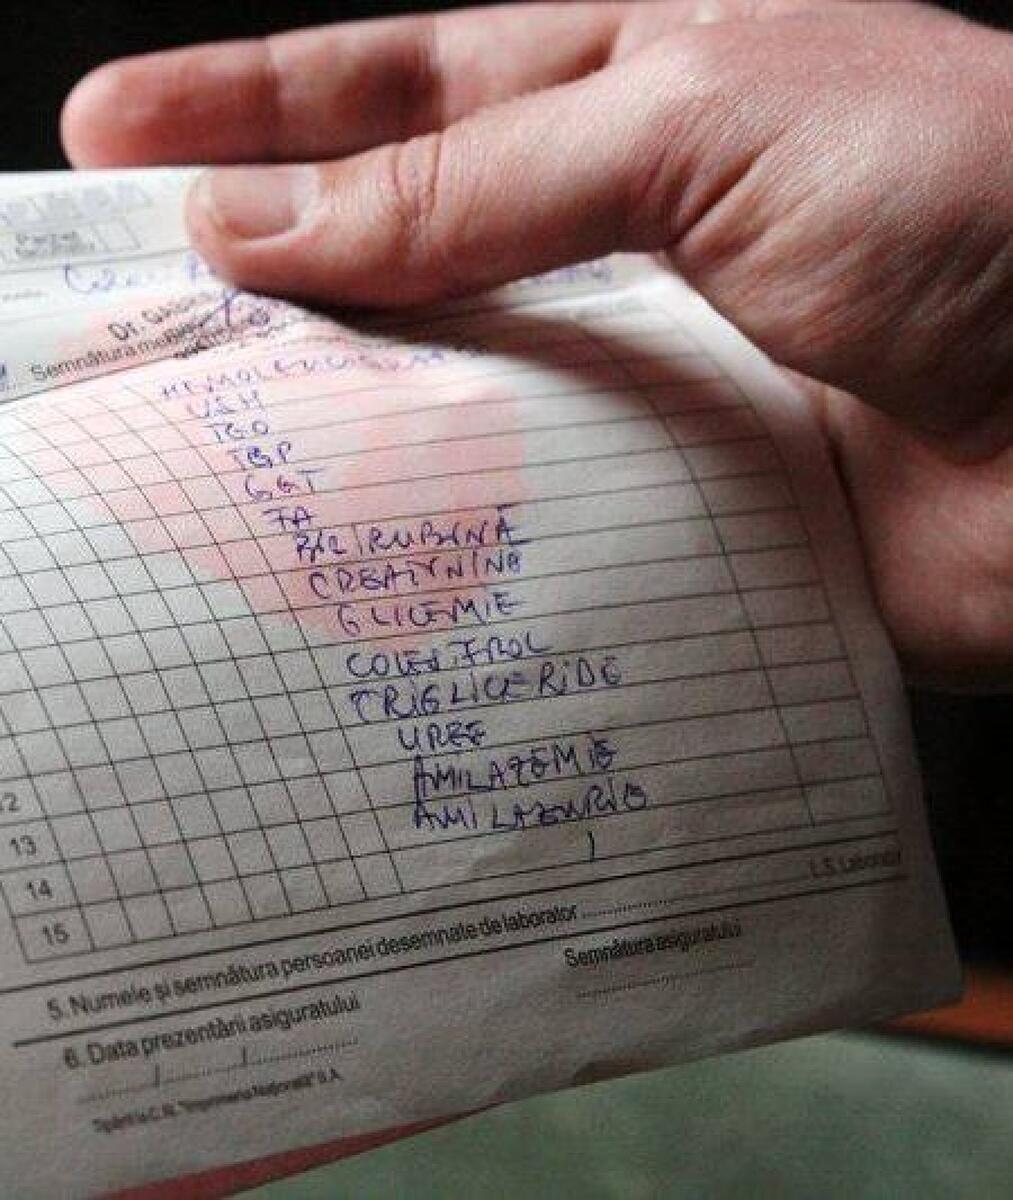 Dr.
Semnătura
VSH
TGO
TGP
GGT
FA
BILIRUBINĂ
CREATININĂ
GLICEMIE
COLESTROL
TRIGLICERIDE
UREE
AMILAZEMIE
AMILAZURIE
12
13
14
15
L.S. Laborator
5. Numele și semnătura persoanei desemnate de laborator
Semnătura asiguratului
6. Data prezentării asiguratului
Tipărit la C.N. "Imprimeria Națională" S.A.